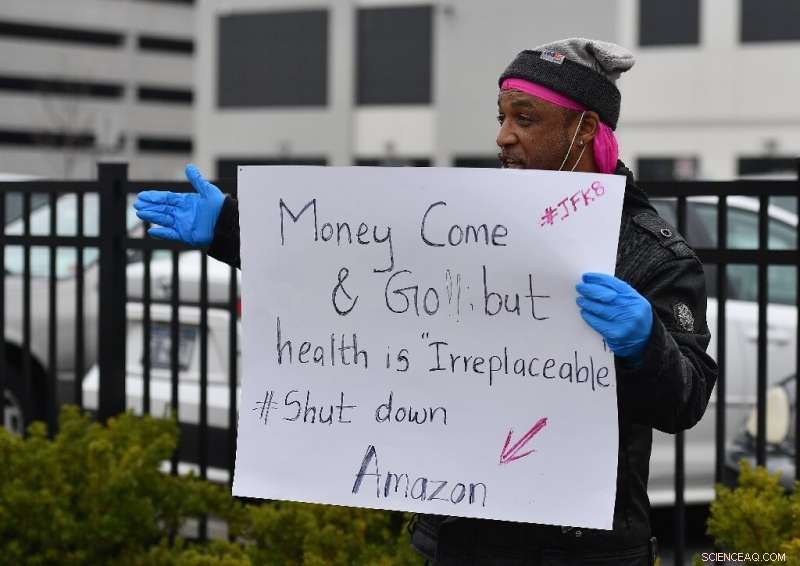 #JFK8
Money Come
& Go!!; but
health is "Irreplaceable
#Shut down
Amazon
SCIENCEAQ.COM